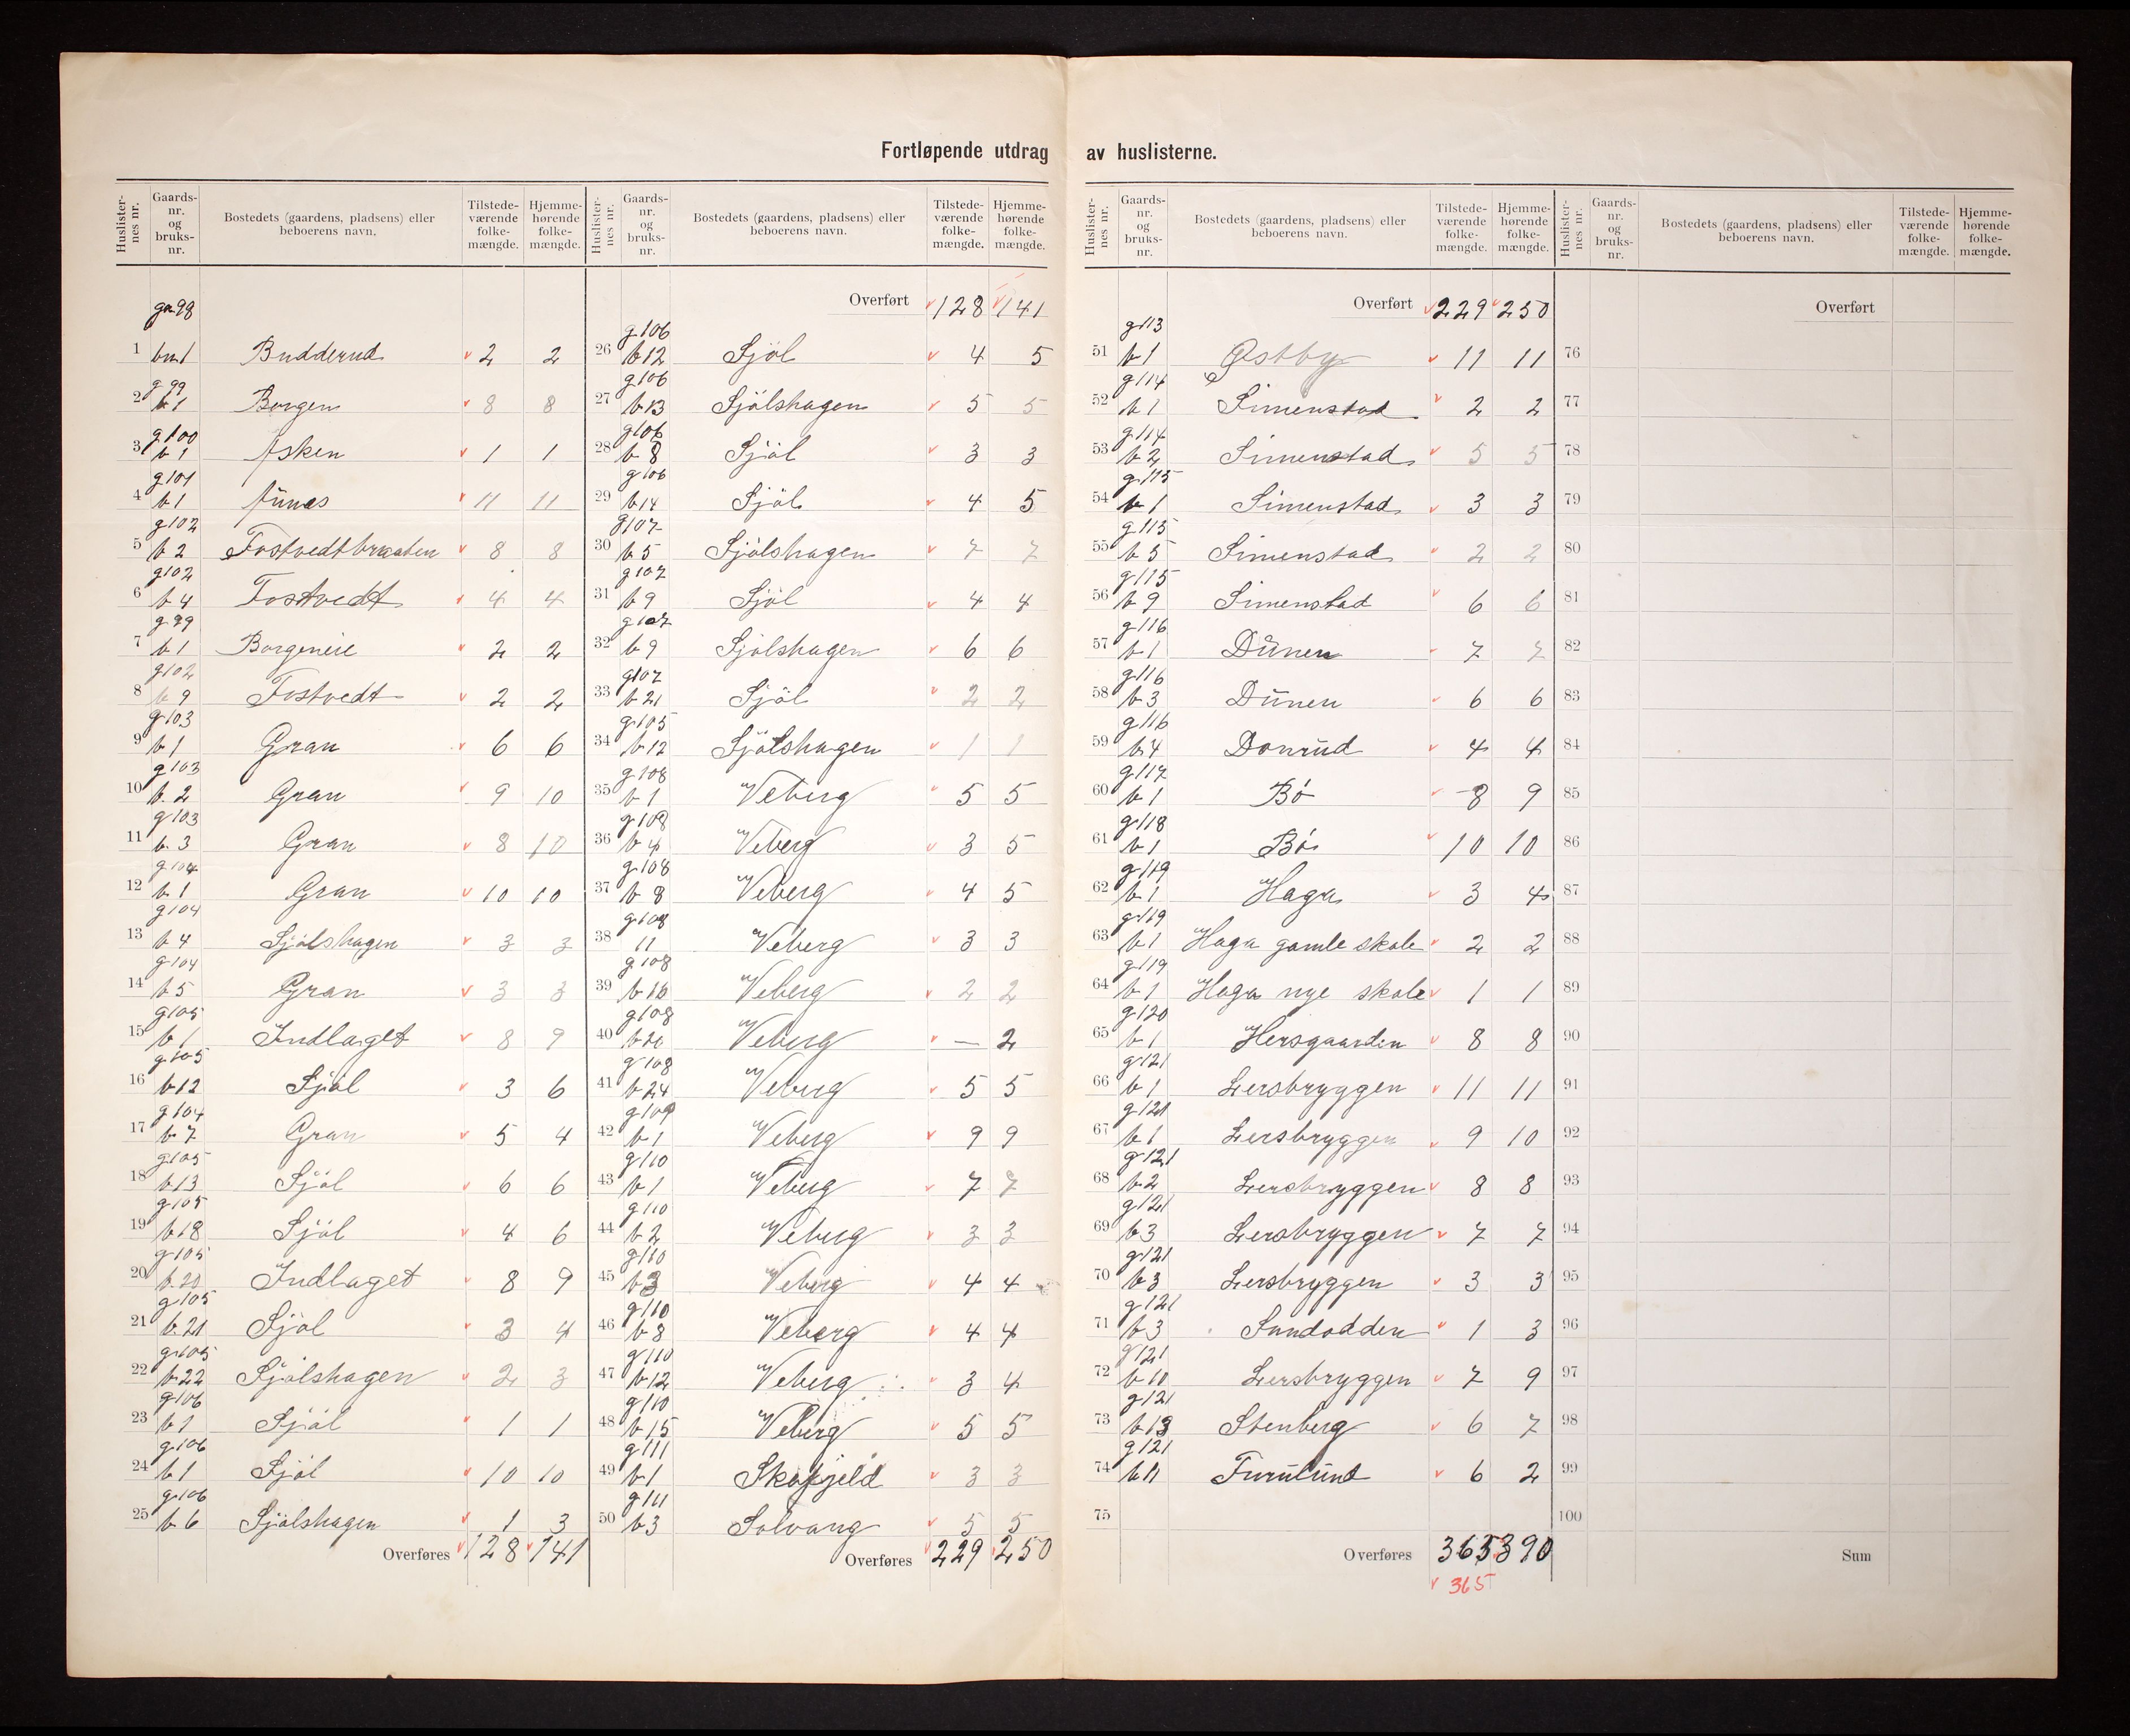 Fortløpende utdrag av huslisterne.
Huslister-nes nr. Gaards-nr. og bruks-nr. Bostedets (gaardens, pladsens) eller beboerens navn. Tilstede-værende folke-mængde. Hjemme-hørende folke-mængde.
gn 98
1 bn 1 Budderud 2 2
g 99
2 b 1 Borgen 8 8
g 100
3 b 1 Asken 1 1
g 101
4 b 1 Aunes 11 11
g 102
5 b 2 Fostvedtbraaten 8 8
g 102
6 b 4 Fostvedt 4 4
g 99
7 b 1 Borgeneie 2 2
g 102
8 b 9 Fostvedt 2 2
g 103
9 b 1 Gran 6 6
g 103
10 b. 2 Gran 9 10
g 103
11 b. 3 Gran 8 10
g 104
12 b. 1 Gran 10 10
g 104
13 b 4 Sjölshagen 3 3
g 104
14 b 5 Gran 3 3
g 105
15 b 1 Indlaget 8 9
g 105
16 b 12 Sjöl 3 6
g 104
17 b. 7 Gran 5 4
g 105
18 b 13 Sjöl 6 6
g 105
19 b 18 Sjöl 4 6
g 105
20 b. 20 Indlaget 8 9
g 105
21 b. 21 Sjöl 3 4
g 105
22 b. 22 Sjölshagen 2 3
g 106
23 b 1 Sjöl 1 1
g 106
24 b 1 Sjöl 10 10
g 106
25 b. 6 Sjölshagen 1 3
Overføres 128 141
Huslister-nes nr. Gaards-nr. og bruks-nr. Bostedets (gaardens, pladsens) eller beboerens navn. Tilstede-værende folke-mængde. Hjemme-hørende folke-mængde.
Overført 128 141
g. 106
26 b 12 Sjöl 4 5
g 106
27 b 13 Sjölshagen 5 5
g 106
28 b 8 Sjöl 3 3
g 106
29 b 14 Sjöl 4 5
g 107
30 b 5 Sjölshagen 7 7
g 107
31 b 9 Sjöl 4 4
g 107
32 b 9 Sjölshagen 6 6
g 107
33 b 21 Sjöl 2 2
g 105
34 b. 12 Sjölshagen 1 1
g 108
35 b 1 Veberg 5 5
g 108
36 b 4 Veberg 3 5
g 108
37 b 8 Veberg 4 5
g 108
38 11 Veberg 3 3
g 108
39 b 16 Veberg 2 2
g 108
40 b 20 Veberg — 2
g 108
41 b 24 Veberg 5 5
g 109
42 b 1 Veberg 9 9
g 110
43 b 1 Veberg 7 7
g 110
44 b 2 Veberg 3 3
g 110
45 b 3 Veberg 4 4
g 110
46 b 8 Veberg 4 4
g 110
47 b 12 Veberg 3 4
g 110
48 b 15 Veberg 5 5
g 111
49 b 1 Skøyjeld 3 3
g 111
50 b 3 Solvang 5 5
Overføres 229 250
Huslister-nes nr. Gaards-nr. og bruks-nr. Bostedets (gaardens, pladsens) eller beboerens navn. Tilstede-værende folke-mængde. Hjemme-hørende folke-mængde.
Overført 229 250
g 113
51 b 1 Østby 11 11
g 114
52 b 1 Simenstad 2 2
g 114
53 b 2 Simenstad 5 5
g 115
54 b 1 Simenstad 3 3
g 115
55 b 5 Simenstad 2 2
g 115
56 b 9 Simenstad 6 6
g 116
57 b 1 Dunen 7 7
g 116
58 b 3 Dunen 6 6
g 116
59 b. 4 Donrud 4 4
g 117
60 b 1 Bö 8 9
g 118
61 b 1 Bö 10 10
g 119
62 b 1 Haga 3 4
g 119
63 b 1 Haga gamle skole 2 2
g 119
64 b 1 Haga nye skole 1 1
g 120
65 b 1 Hersgaarden 8 8
g 121
66 b 1 Lersbryggen 11 11
g 121
67 b 1 Lersbryggen 9 10
g 121
68 b 2 Lersbryggen 8 8
g 121
69 b 3 Lersbryggen 7 7
g 121
70 b 3 Lersbryggen 3 3
g 121
71 b 3 Sundodden 1 3
g 121
72 b 10 Lersbryggen 7 9
g 121
73 b 13 Stenberg 6 7
g 121
74 b 11 Furulund 6 2
75
Overføres 365 390
365
Huslister-nes nr. Gaards-nr. og bruks-nr. Bostedets (gaardens, pladsens) eller beboerens navn. Tilstede-værende folke-mængde. Hjemme-hørende folke-mængde.
Overført
76
77
78
79
80
81
82
83
84
85
86
87
88
89
90
91
92
93
94
95
96
97
98
99
100
Sum